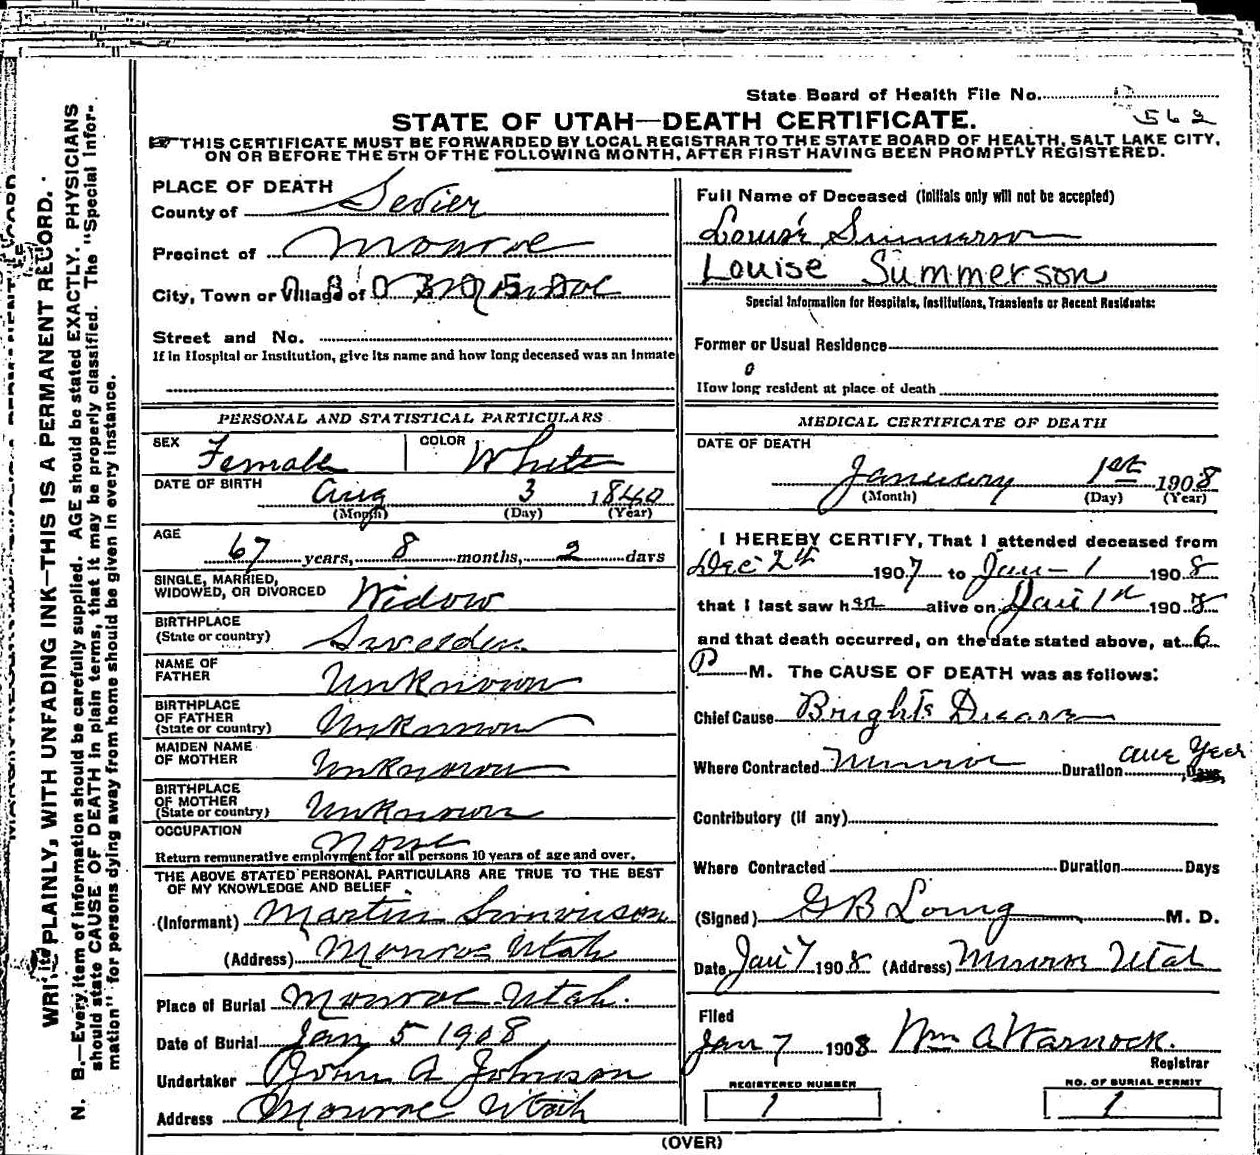 State Board of Health File No. 562
STATE OF UTAH—DEATH CERTIFICATE.
THIS CERTIFICATE MUST BE FORWARDED BY LOCAL REGISTRAR TO THE STATE BOARD OF HEALTH, SALT LAKE CITY,
ON OR BEFORE THE 5TH OF THE FOLLOWING MONTH, AFTER FIRST HAVING BEEN PROMPTLY REGISTERED.
WRITE PLAINLY, WITH UNFADING INK—THIS IS A PERMANENT RECORD.
N. B.—Every item of information should be carefully supplied. AGE should be stated EXACTLY. PHYSICIANS
should state CAUSE OF DEATH in plain terms, that it may be properly classified. The "Special Infor-
mation" for persons dying away from home should be given in every instance.
PLACE OF DEATH
County of Sevier
Precinct of Monroe
City, Town or Village of
Street and No.
If in Hospital or Institution, give its name and how long deceased was an inmate
PERSONAL AND STATISTICAL PARTICULARS
SEX Female COLOR White
DATE OF BIRTH Aug 3 1840
(Month) (Day) (Year)
AGE
67 years, 8 months, 2 days
SINGLE, MARRIED,
WIDOWED, OR DIVORCED Widow
BIRTHPLACE
(State or country) Sweden
NAME OF
FATHER Unknown
BIRTHPLACE
OF FATHER
(State or country) Unknown
MAIDEN NAME
OF MOTHER Unknown
BIRTHPLACE
OF MOTHER
(State or country) Unknown
OCCUPATION None
Return remunerative employment for all persons 10 years of age and over.
THE ABOVE STATED PERSONAL PARTICULARS ARE TRUE TO THE BEST
OF MY KNOWLEDGE AND BELIEF
(Informant) Martin
(Address) Monroe Utah
Place of Burial Monroe Utah.
Date of Burial Jan 5 1908
Undertaker John A Johnson
Address Monroe Utah
Full Name of Deceased (Initials only will not be accepted)
Louise Summerson
Louise Summerson
Special Information for Hospitals, Institutions, Transients or Recent Residents:
Former or Usual Residence
How long resident at place of death
MEDICAL CERTIFICATE OF DEATH
DATE OF DEATH
January 1st 1908
(Month) (Day) (Year)
I HEREBY CERTIFY, That I attended deceased from
Dec 2th 1907 to Jan - 1 1908
that I last saw her alive on Jan 1st 1908
and that death occurred, on the date stated above, at 6
P M. The CAUSE OF DEATH was as follows:
Chief Cause Brights Disease
Where Contracted Monroe Duration one Year Days
Contributory (if any)
Where Contracted Duration Days
(Signed) G B Long M. D.
Date Jan 7 1908 (Address) Monroe Utah
Filed
Jan 7 1908 Wm A Warnock.
Registrar
REGISTERED NUMBER
1
NO. OF BURIAL PERMIT
1
(OVER)